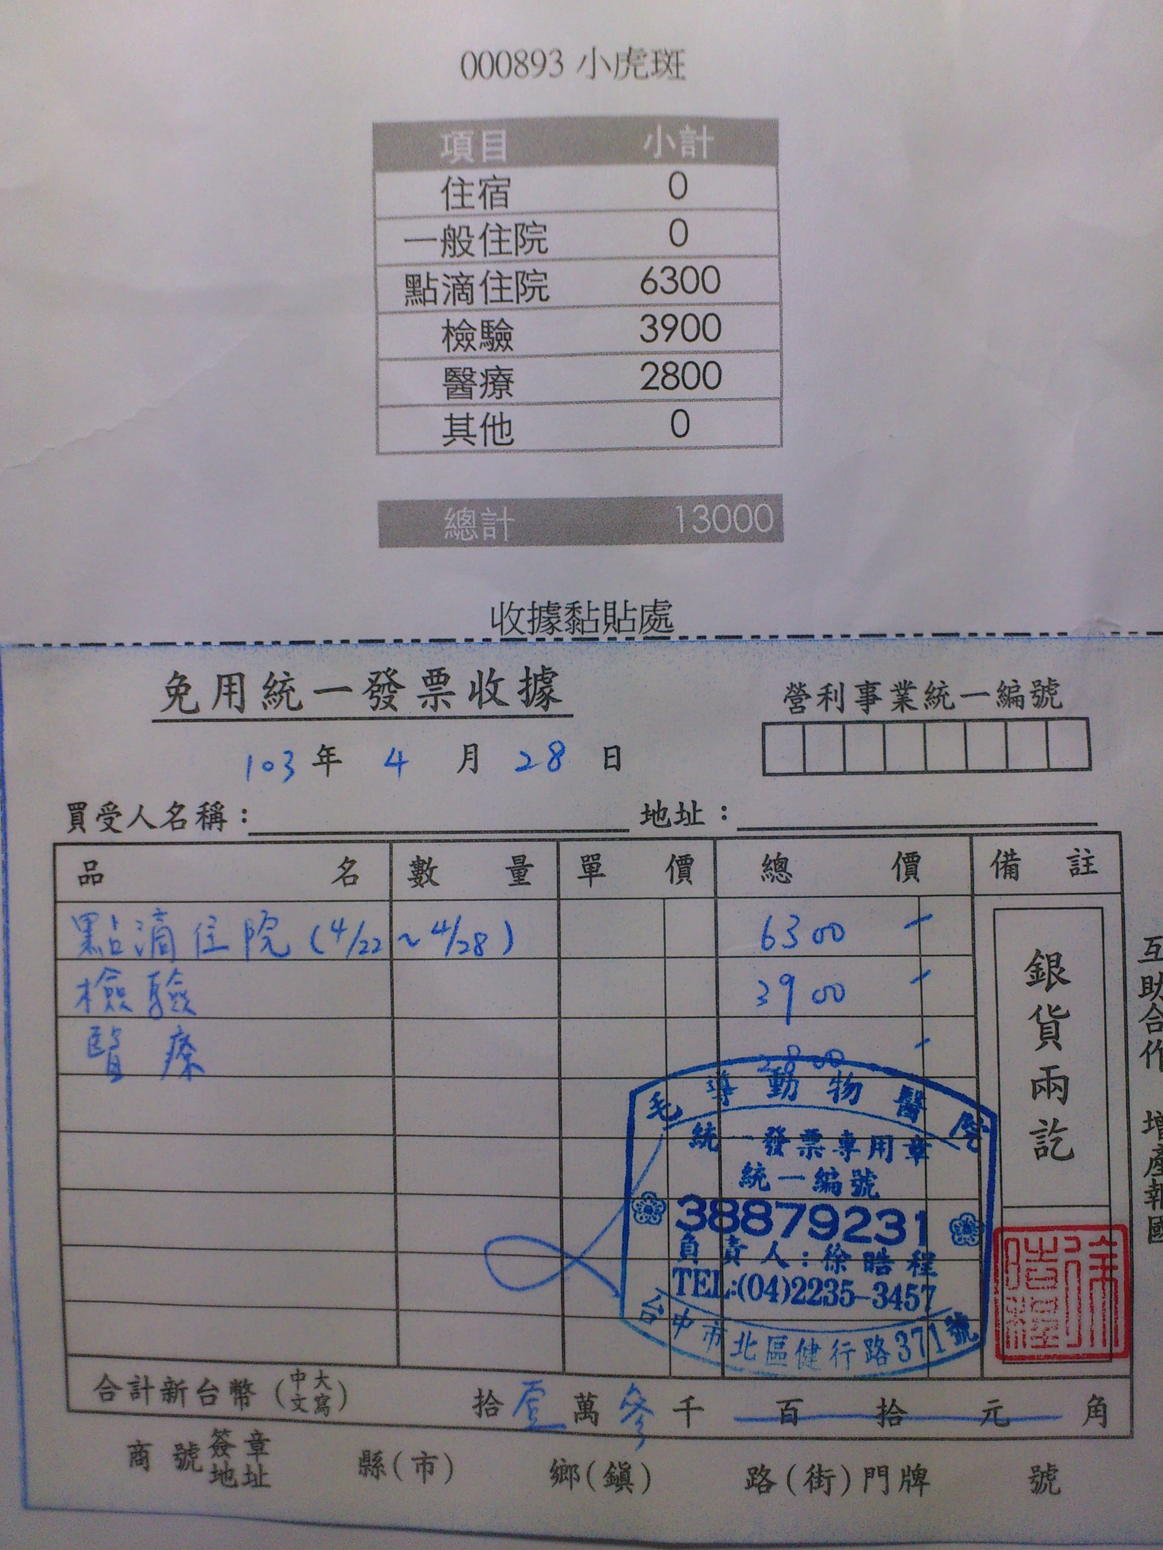 000893 小虎斑
項目 小計
住宿 0
一般住院 0
點滴住院 6300
檢驗 3900
醫療 2800
其他 0
總計 13000
收據黏貼處
免用統一發票收據
營利事業統一編號
103 年 4 月 28 日
買受人名稱： 地址：
品名 數量 單價 總價 備註
點滴住院 (4/22 ~ 4/28) 6300 -
檢驗 3900 -
醫療 2800 -
銀貨兩訖
互助合作 增產報國
毛導動物醫院
統一發票專用章
統一編號
38879231
負責人：徐晧程
TEL:(04)2235-3457
台中市北區健行路371號
徐晧程
合計新台幣(中文大寫) 拾壹萬參千百拾元角
商號簽章地址 縣(市) 鄉(鎮) 路(街)門牌 號